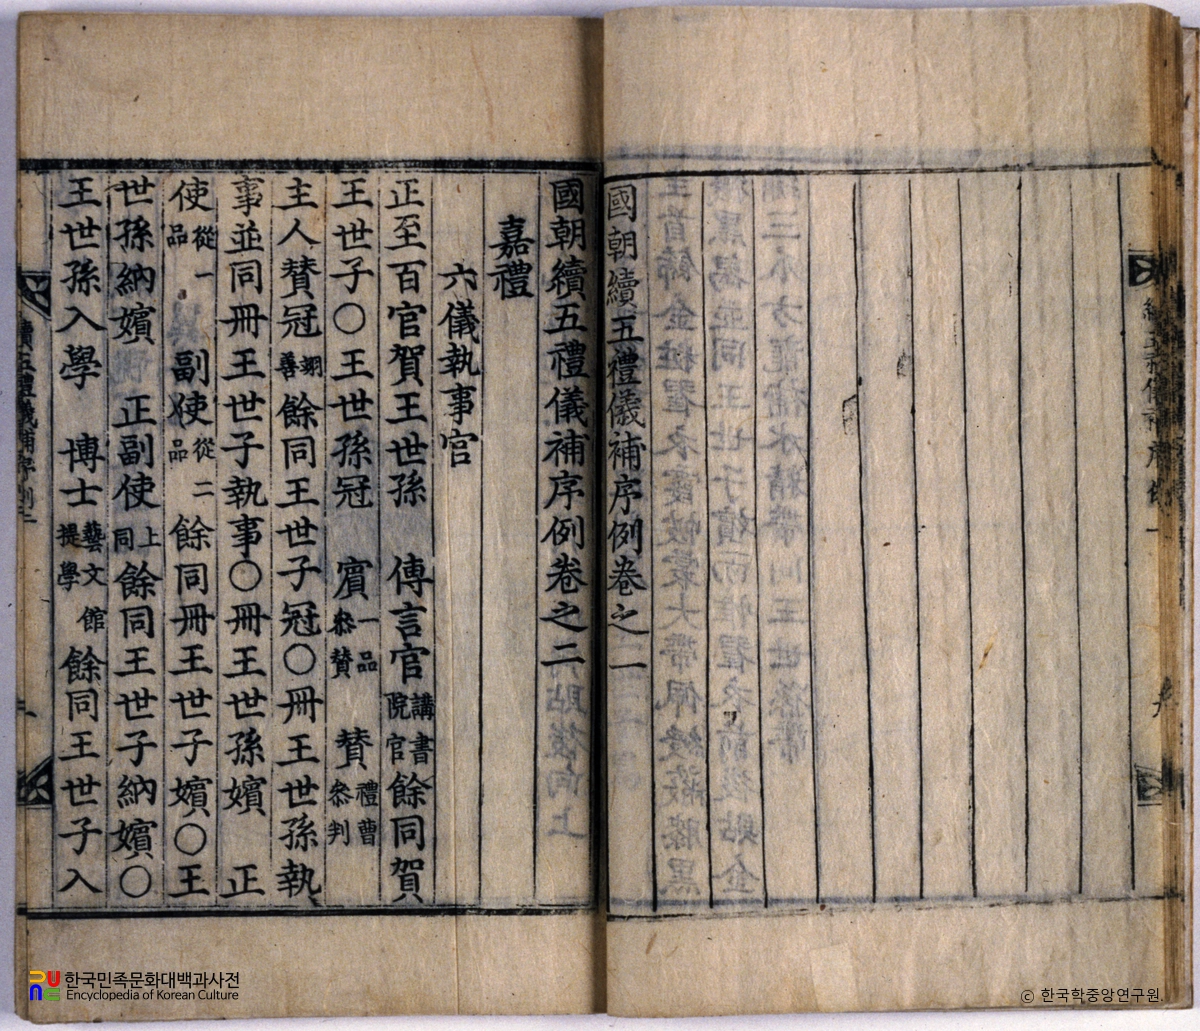 國朝續五禮儀補序例卷之一
國朝續五禮儀補序例卷之二
嘉禮
六儀執事官
正至百官賀王世孫 傳言官講書院官餘同賀
王世子〇王世孫冠 賓一品參贊 贊禮曹參判
主人贊冠翊善餘同王世子冠〇冊王世孫執
事並同冊王世子執事〇冊王世孫嬪 正
使從一品 副使從二品 餘同冊王世子嬪〇王
世孫納嬪 正副使上同餘同王世子納嬪〇
王世孫入學 博士藝文館提學 餘同王世子入
한국민족문화대백과사전
Encyclopedia of Korean Culture
© 한국학중앙연구원